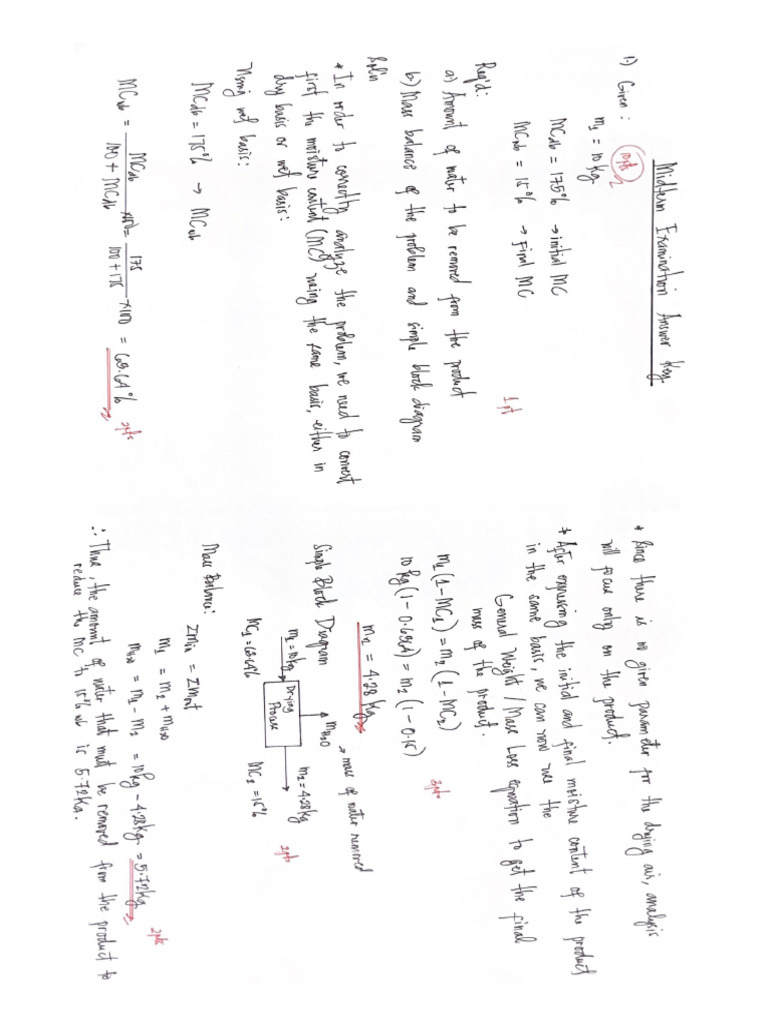 Midterm Examination Answer Key
1.) Given : 10pts
m₁ = 10 kg
MCdb = 175% → initial MC
MCwb = 15% → Final MC
Req'd: 1pt
a.) Amount of water to be removed from the product
b.) Mass balance of the problem and simple block diagram
Sol'n
* In order to correctly analyze the problem, we need to convert
first the moisture content (MC) using the same basis, either in
dry basis or wet basis:
Using wet basis:
MCdb = 175% → MCwb
MCwb = MCdb / 100 + MCdb x100 = 175 / 100 + 175 x100 = 63.64% 2pts
* Since there is no given parameter for the drying air, analysis
will focus only on the product.
* After expressing the initial and final moisture content of the product
in the same basis, we can now use the
General Weight / Mass Loss equation to get the final
mass of the product.
m₁ (1 - MC₁) = m₂ (1 - MC₂)
10kg (1 - 0.6364) = m₂ (1 - 0.15) 3pts
m₂ = 4.28 kg
Simple Block Diagram
mH₂O → mass of water removed
m₁ = 10kg
Drying
Process
m₂ = 4.28kg
MC₁ = 63.64%
MC₂ = 15% 2pts
Mass Balance:
Σmin = Σmout
m₁ = m₂ + mH₂O
mH₂O = m₁ - m₂ = 10kg - 4.28kg = 5.72kg 2pts
∴ Thus, the amount of water that must be removed from the product to
reduce the MC to 15% wb is 5.72kg.